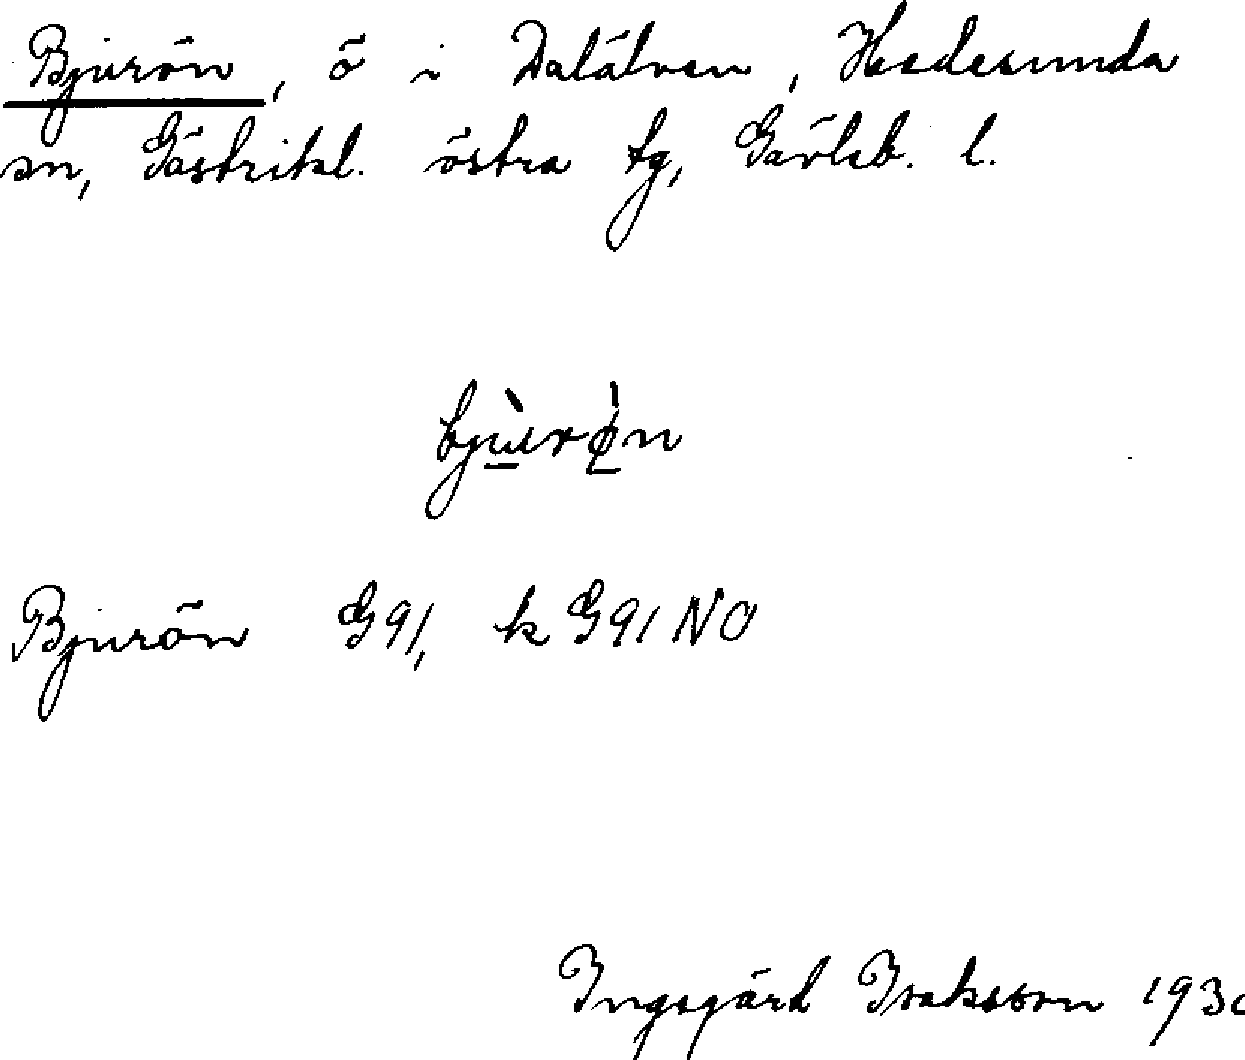 Bjurön, ö i Dalälven, Hedesunda
sn, Gästrikl. östra tg, Gävleb. l.
bjùrø̀n
Bjurön G91, k G91 NO
Ingegärd Isaksson